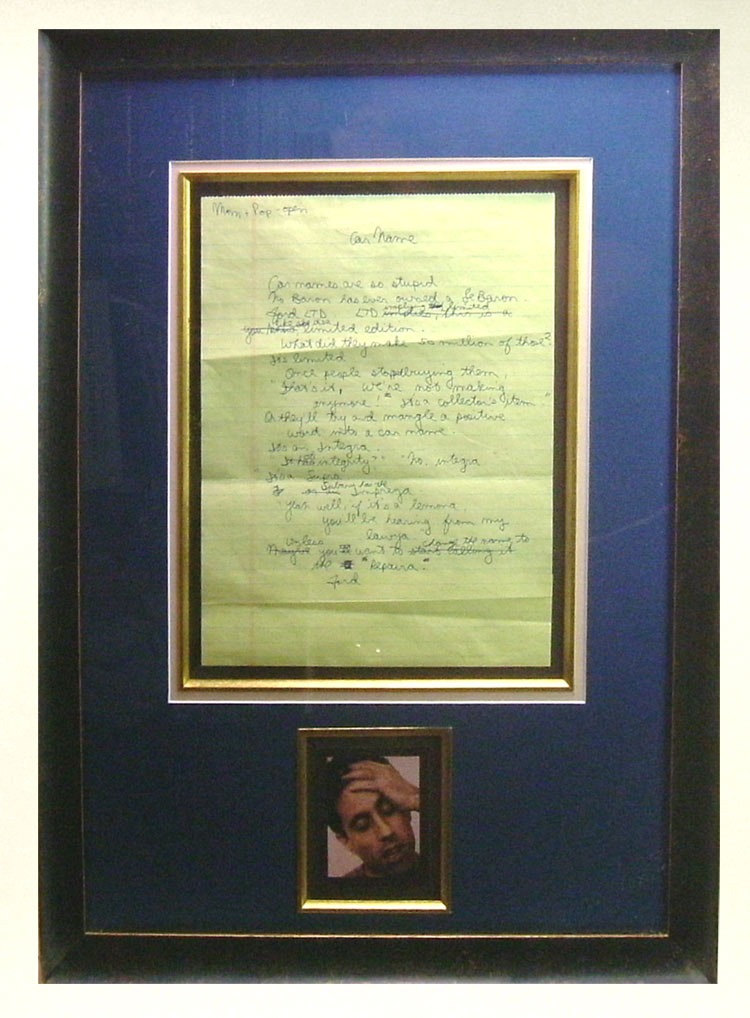 Mom + Pop - open
Car Name
Car names are so stupid
No Baron has ever owned a Le Baron.
implying limited
Ford LTD LTD this is a
limited edition.
What did they make 50 million of those?
limited
Once people stop buying them,
"that's it, We're not making
anymore!" It's a collector's item."
Or they'll try and mangle a positive
word into a car name.
It's an Integra.
integrity?" "No, integra
It's a Supra
Subaru has the
Impreza
"Yeah well, if it's a lemona,
you'll be hearing from my
unless lawya
change the name to
Maybe you want to start calling it
the "Repaira."
Ford